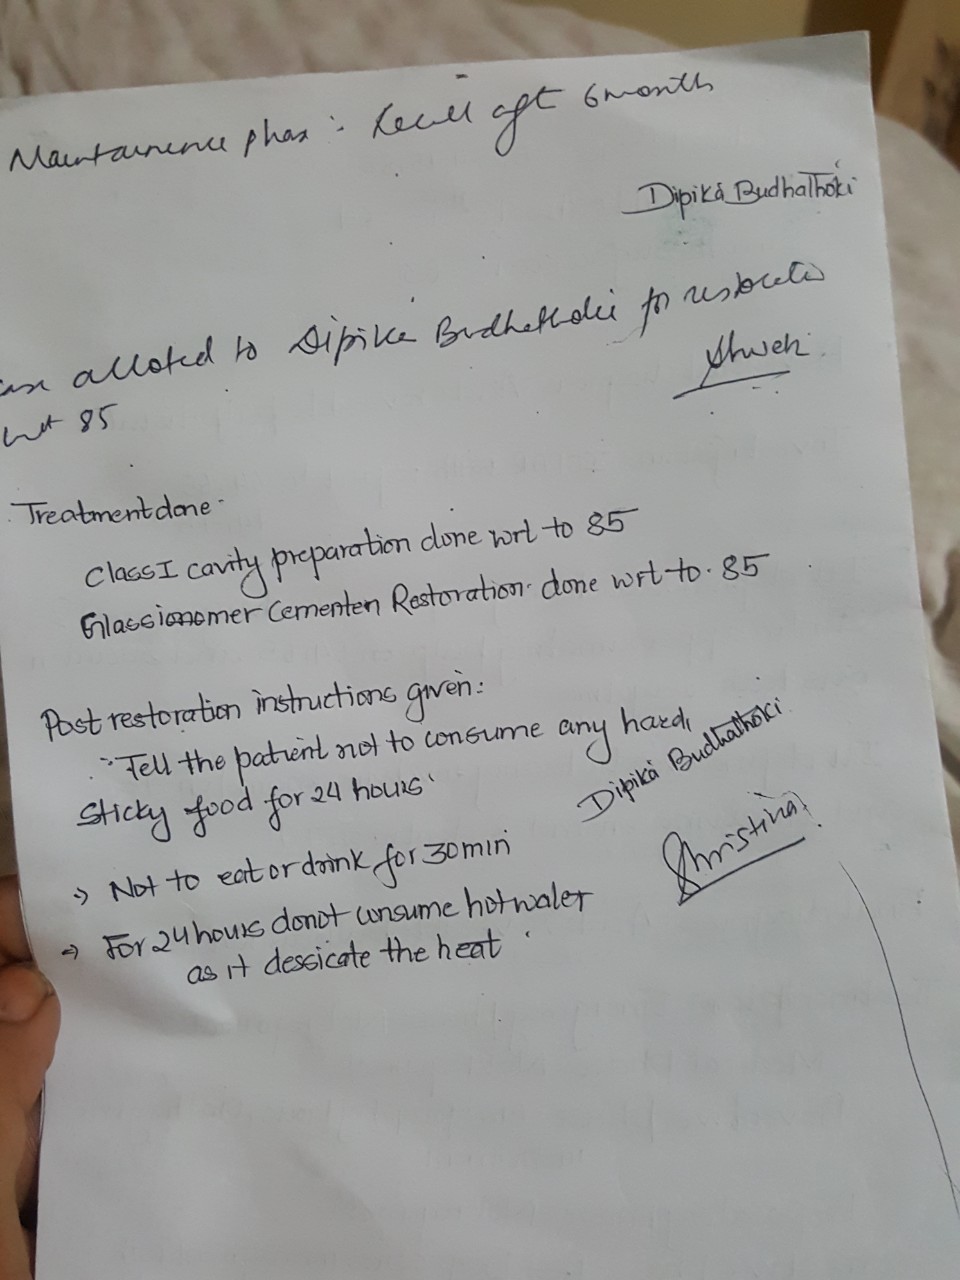 Maintainence phase : Recall aft 6 month
Dipika Budhathoki
alloted to Dipika Budhathoki for restoratio
wrt 85
Shweh
Treatment done -
Class I cavity preparation done wrt to 85
Glassionomer Cementen Restoration done wrt to 85
Post restoration instructions given:
Tell the patient not to consume any hard,
Sticky food for 24 hours
Dipika Budhathoki
→ Not to eat or drink for 30 min
Shristina
→ For 24 hours donot consume hot water
as it dessicate the heat